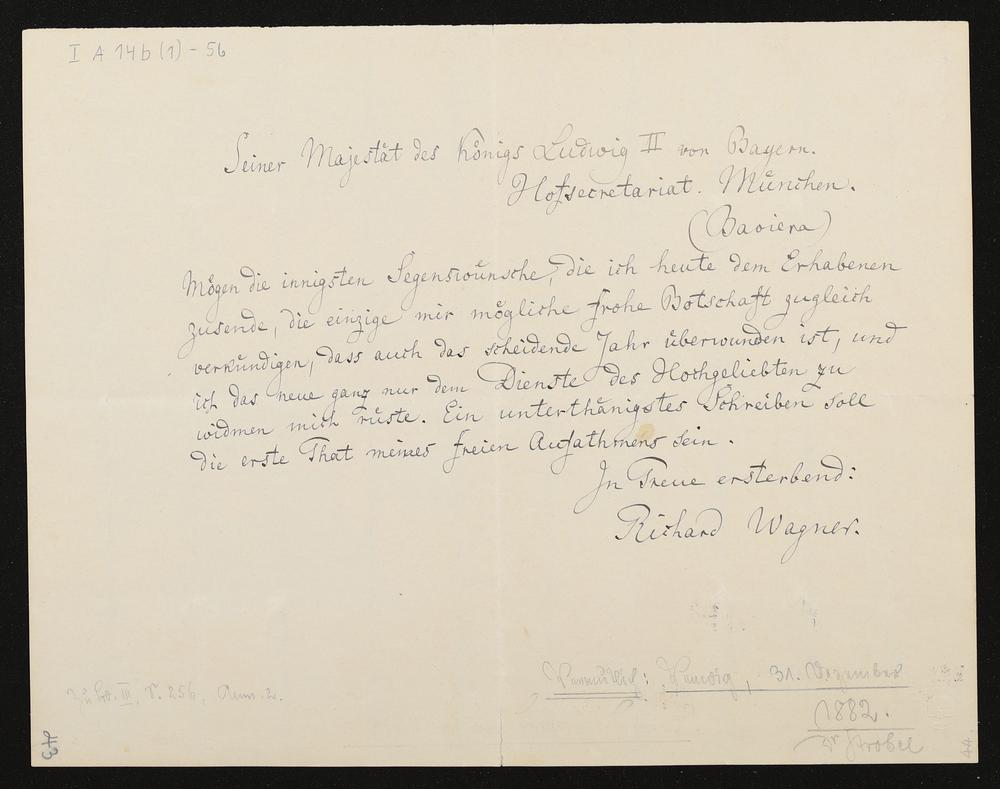 I A 14b (1) - 56
Seiner Majestät des Königs Ludwig II von Bayern.
Hofsecretariat. München.
(Baviera)
Mögen die innigsten Segenswünsche, die ich heute dem Erhabenen
zusende, die einzige mir mögliche frohe Botschaft zugleich
verkündigen, dass auch das scheidende Jahr überwunden ist, und
ich das neue ganz nur dem Dienste des Hochgeliebten zu
widmen mich rüste. Ein unterthänigstes Schreiben soll
die erste That meines freien Aufathmens sein.
In Treue ersterbend:
Richard Wagner.
Vermutlich: Venedig, 31. Dezember
1882.
Dr Strobel
Zu Bd. III, S. 256, Anm. 2.
43